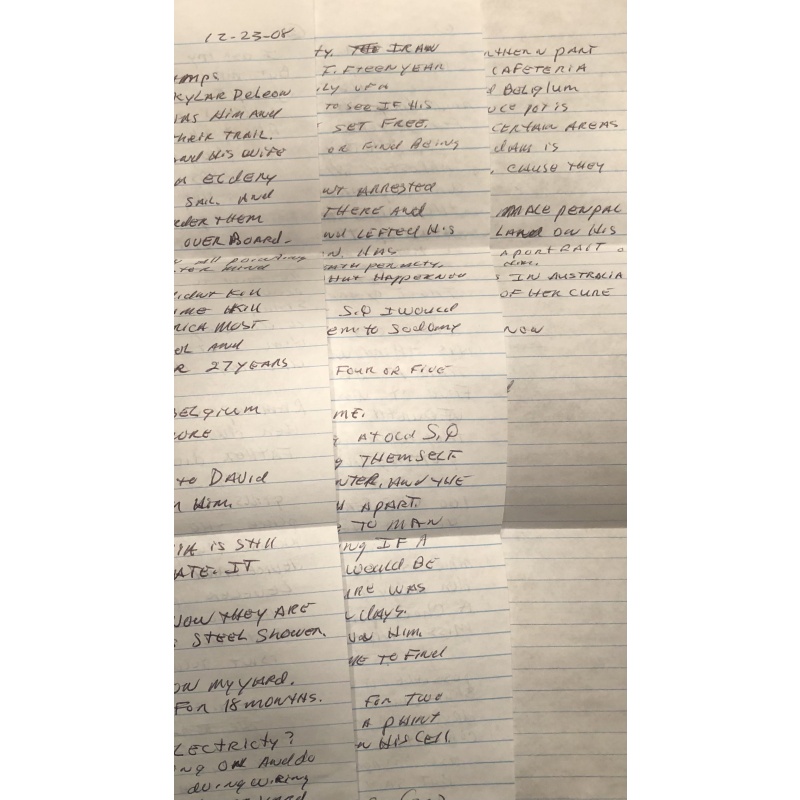 12-23-08
KYLAR DELEON
HIM AND
THEIR TRAIL.
AND HIS WIFE
ELDERY
SAIL. AND
THEM
OVER BOARD.
KILL
MOST
AND
27 YEARS
BELGIUM
TO DAVID
HIM.
IS STILL
ATE. IT
NOW THEY ARE
STEEL SHOWER.
ON MY YARD.
FOR 18 MONTHS.
LECTRICTY?
NG ON AND DO
DOING WIRING
TY. THE IRAN
FIFTEEN YEAR
ILY
TO SEE IF HIS
SET FREE.
OR FIND BEING
ARRESTED
THERE AND
LEFTED HIS
N. HAS
PENALTY.
HAPPENED
S.Q I WOULD
EM TO SODOMY
FOUR OR FIVE
ME.
AT OLD S.Q
THEMSELF
NTER, AND THE
APART.
TO MAN
NG IF A
WOULD BE
IRE WAS
DAYS.
HIM.
ME TO FIND
FOR TWO
A PAINT
N HIS CELL
THERN PART
CAFETERIA
D BELGIUM
UCE POT IS
CERTAIN AREAS
IS
, CAUSE THEY
MALE PENPAL
LAND ON HIS
A PORTRAIT O
S IN AUSTRALIA
OF HER CURE
NOW